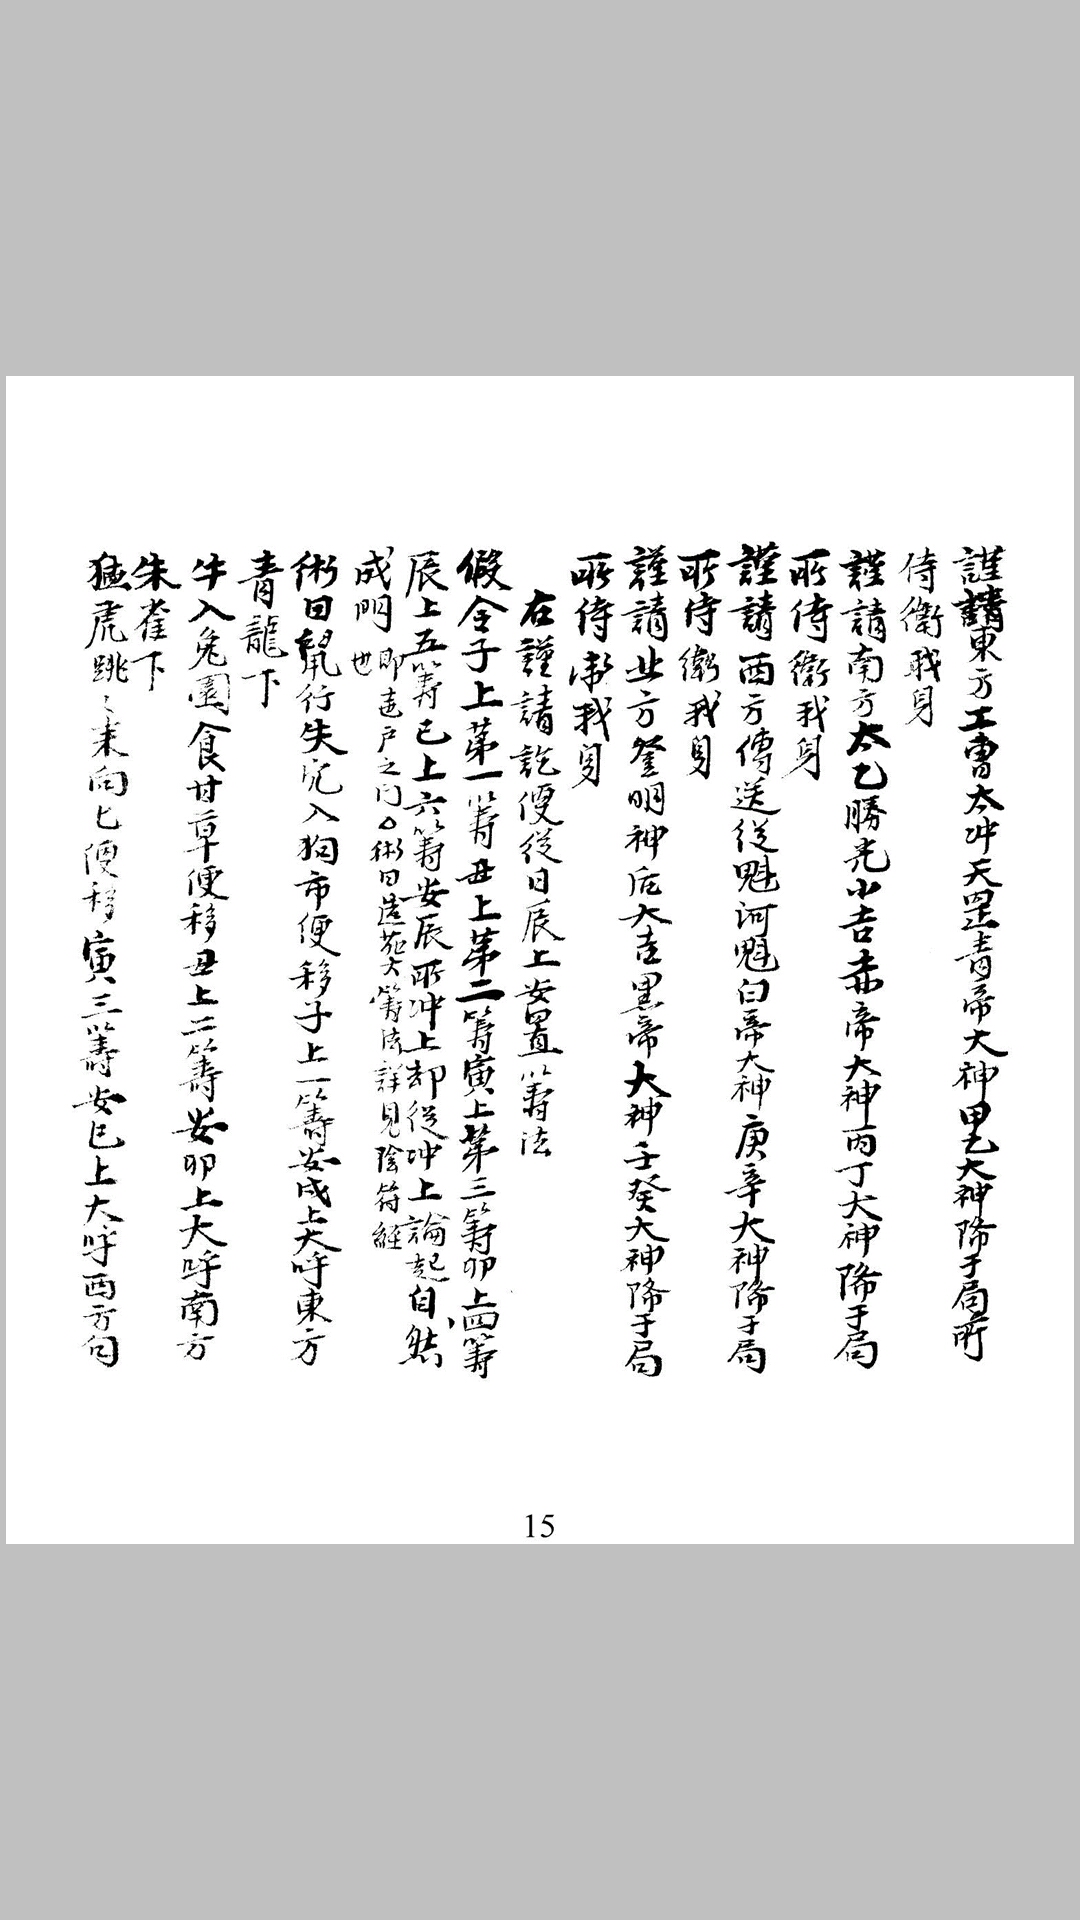 謹請東方工曹太冲天罡青帝大神甲乙大神降于局所
侍衛我身
謹請南方太乙勝光小吉赤帝大神丙丁大神降于局
所侍衛我身
謹請西方傳送從魁河魁白帝大神庚辛大神降于局
所侍衛我身
謹請北方登明神后大吉黑帝大神壬癸大神降于局
所侍衛我身
右謹請訖便從日辰上安置籌法
假令子上第一籌丑上第二籌寅上第三籌卯上四籌
辰上五籌巳上六籌安辰所冲上却從冲上論起自然
成門即是戸之门也術曰大籌法詳見陰符經
術曰鼠行失穴入狗市便移子上一籌安戌上大呼東方
青龍下
牛入兔園食甘草便移丑上二籌安卯上大呼南方
朱雀下
猛虎跳〻來向巳便移寅三籌安巳上大呼西方白
15